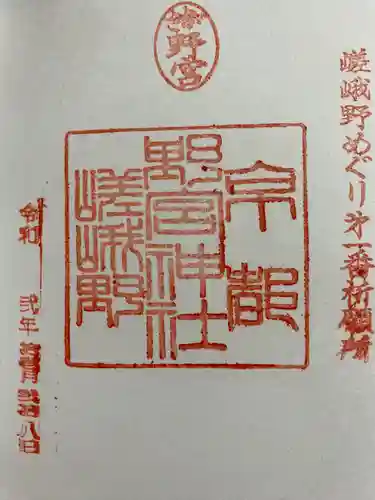 野宮
嵯峨野めぐり第一番祈願所
京都
野宮神社
嵯峨野
令和 弐年 八日